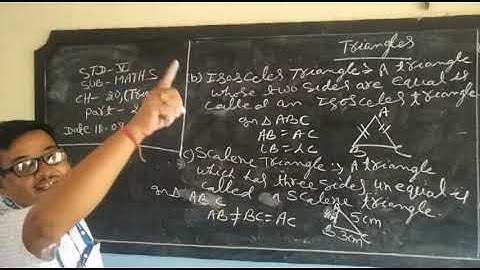 STD-V
SUB-MATHS
CH-20, (Tria
Part-2
Date 11.09
Triangles
(b) Isosceles Triangle:> A triangle
whose two sides are equal is
called an Isosceles triangle
In Δ ABC
AB = AC
∠B = ∠C
A
B
C
(c) Scalene Triangle:> A triangle
which has three sides unequal is
called a Scalene triangle.
In Δ ABC
AB ≠ BC = AC
5cm
B 3cm C